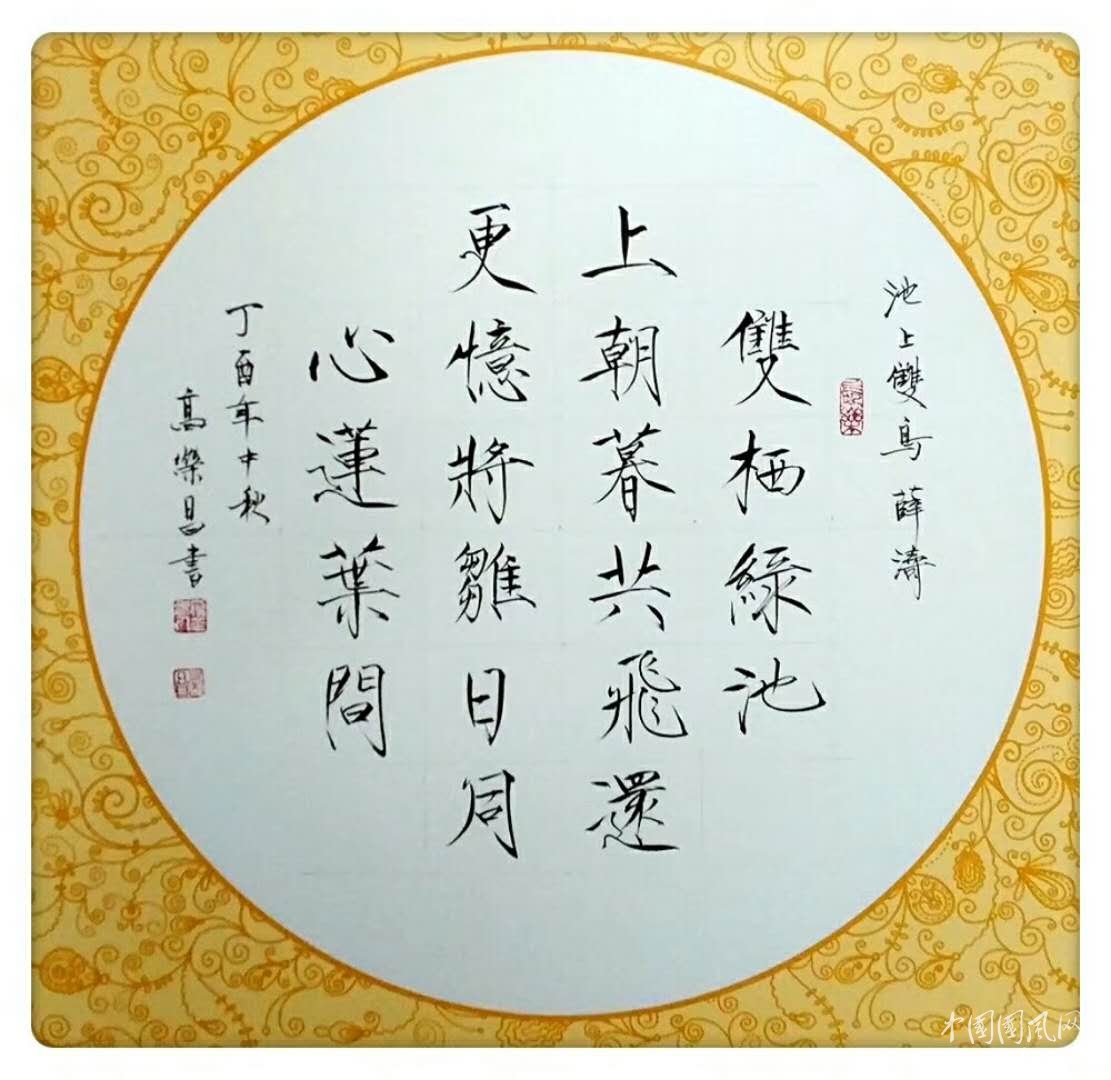 池上雙鳥 薛濤
雙栖綠池
上朝暮共飛還
更憶將雛日同
心蓮葉間
丁酉年中秋
高榮昌書
中国國风网